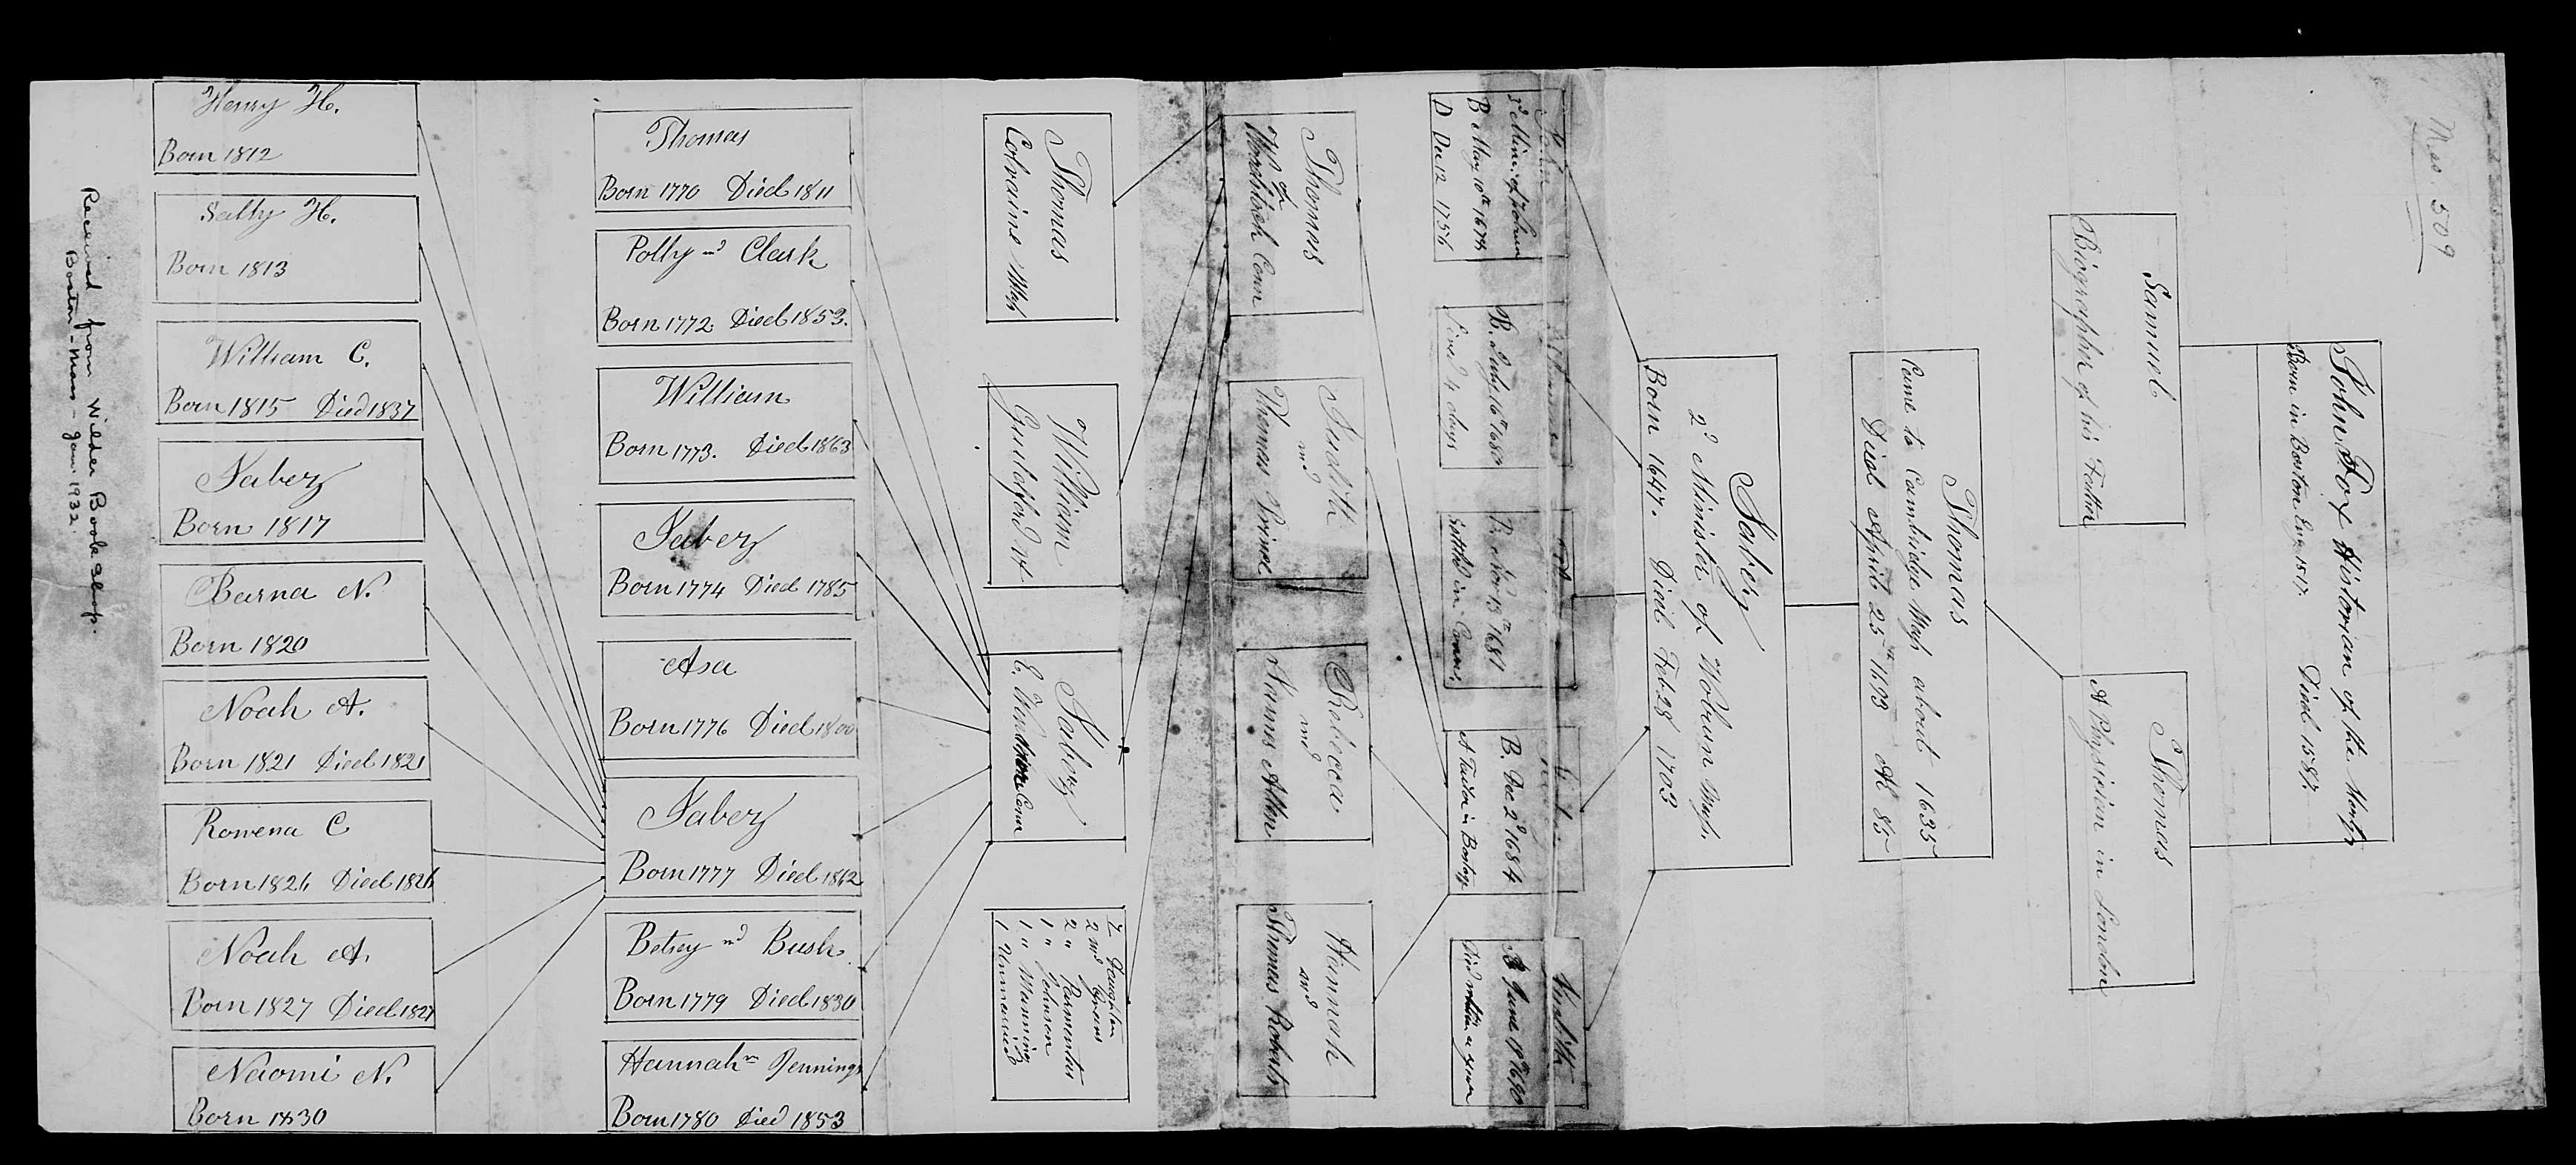 Mss. 509
John Fox Historian of the Martyrs
Born in Boston Eng. 1517. Died 1587.
Samuel
Biographer of his Father
Thomas
A Physician in London
Thomas
Came to Cambridge Mass about 1635
Died April 25th 1693 Æt 85
Jabez
2d Minister of Woburn Mass.
Born 1647. Died Feb 28 1703
John
3d Min. of Woburn
B May 10th 1678
D Dec 12 1756
B. July 16th 1680
Lived 4 days
B. Nov 13th 1681
settled in Conn.
B. Dec 2d 1684
A Tailor in Boston
Judith
B June 19th 1690
Died within a year
Thomas
of
Woodstock Conn
Judith
md
Thomas Prince
Rebecca
md
Hannah
md
Thomas Roberts
Thomas
Colraine Mass
William
Guildford Vt
Jabez
E. Windsor Conn
7 Daughters
2 md Evans
2 " Parmenter
1 " Johnson
1 " Manning
1 Unmarried
Thomas
Born 1770 Died 1811
Polly md Clark
Born 1772. Died 1853.
William
Born 1773. Died 1863
Jabez
Born 1774 Died 1785
Asa
Born 1776 Died 1800
Jabez
Born 1777 Died 1842
Betsey md Bush
Born 1779 Died 1830
Hannah m Jennings
Born 1780 Died 1853
Henry H.
Born 1812
Sally H.
Born 1813
William C.
Born 1815 Died 1837
Jabez
Born 1817
Barna N.
Born 1820
Noah A.
Born 1821 Died 1821
Rowena C
Born 1826 Died 1826
Noah A.
Born 1827 Died 1827
Naomi N.
Born 1830
Received from Wilder Book Shop.
Boston - Mass - Jan. 1932.